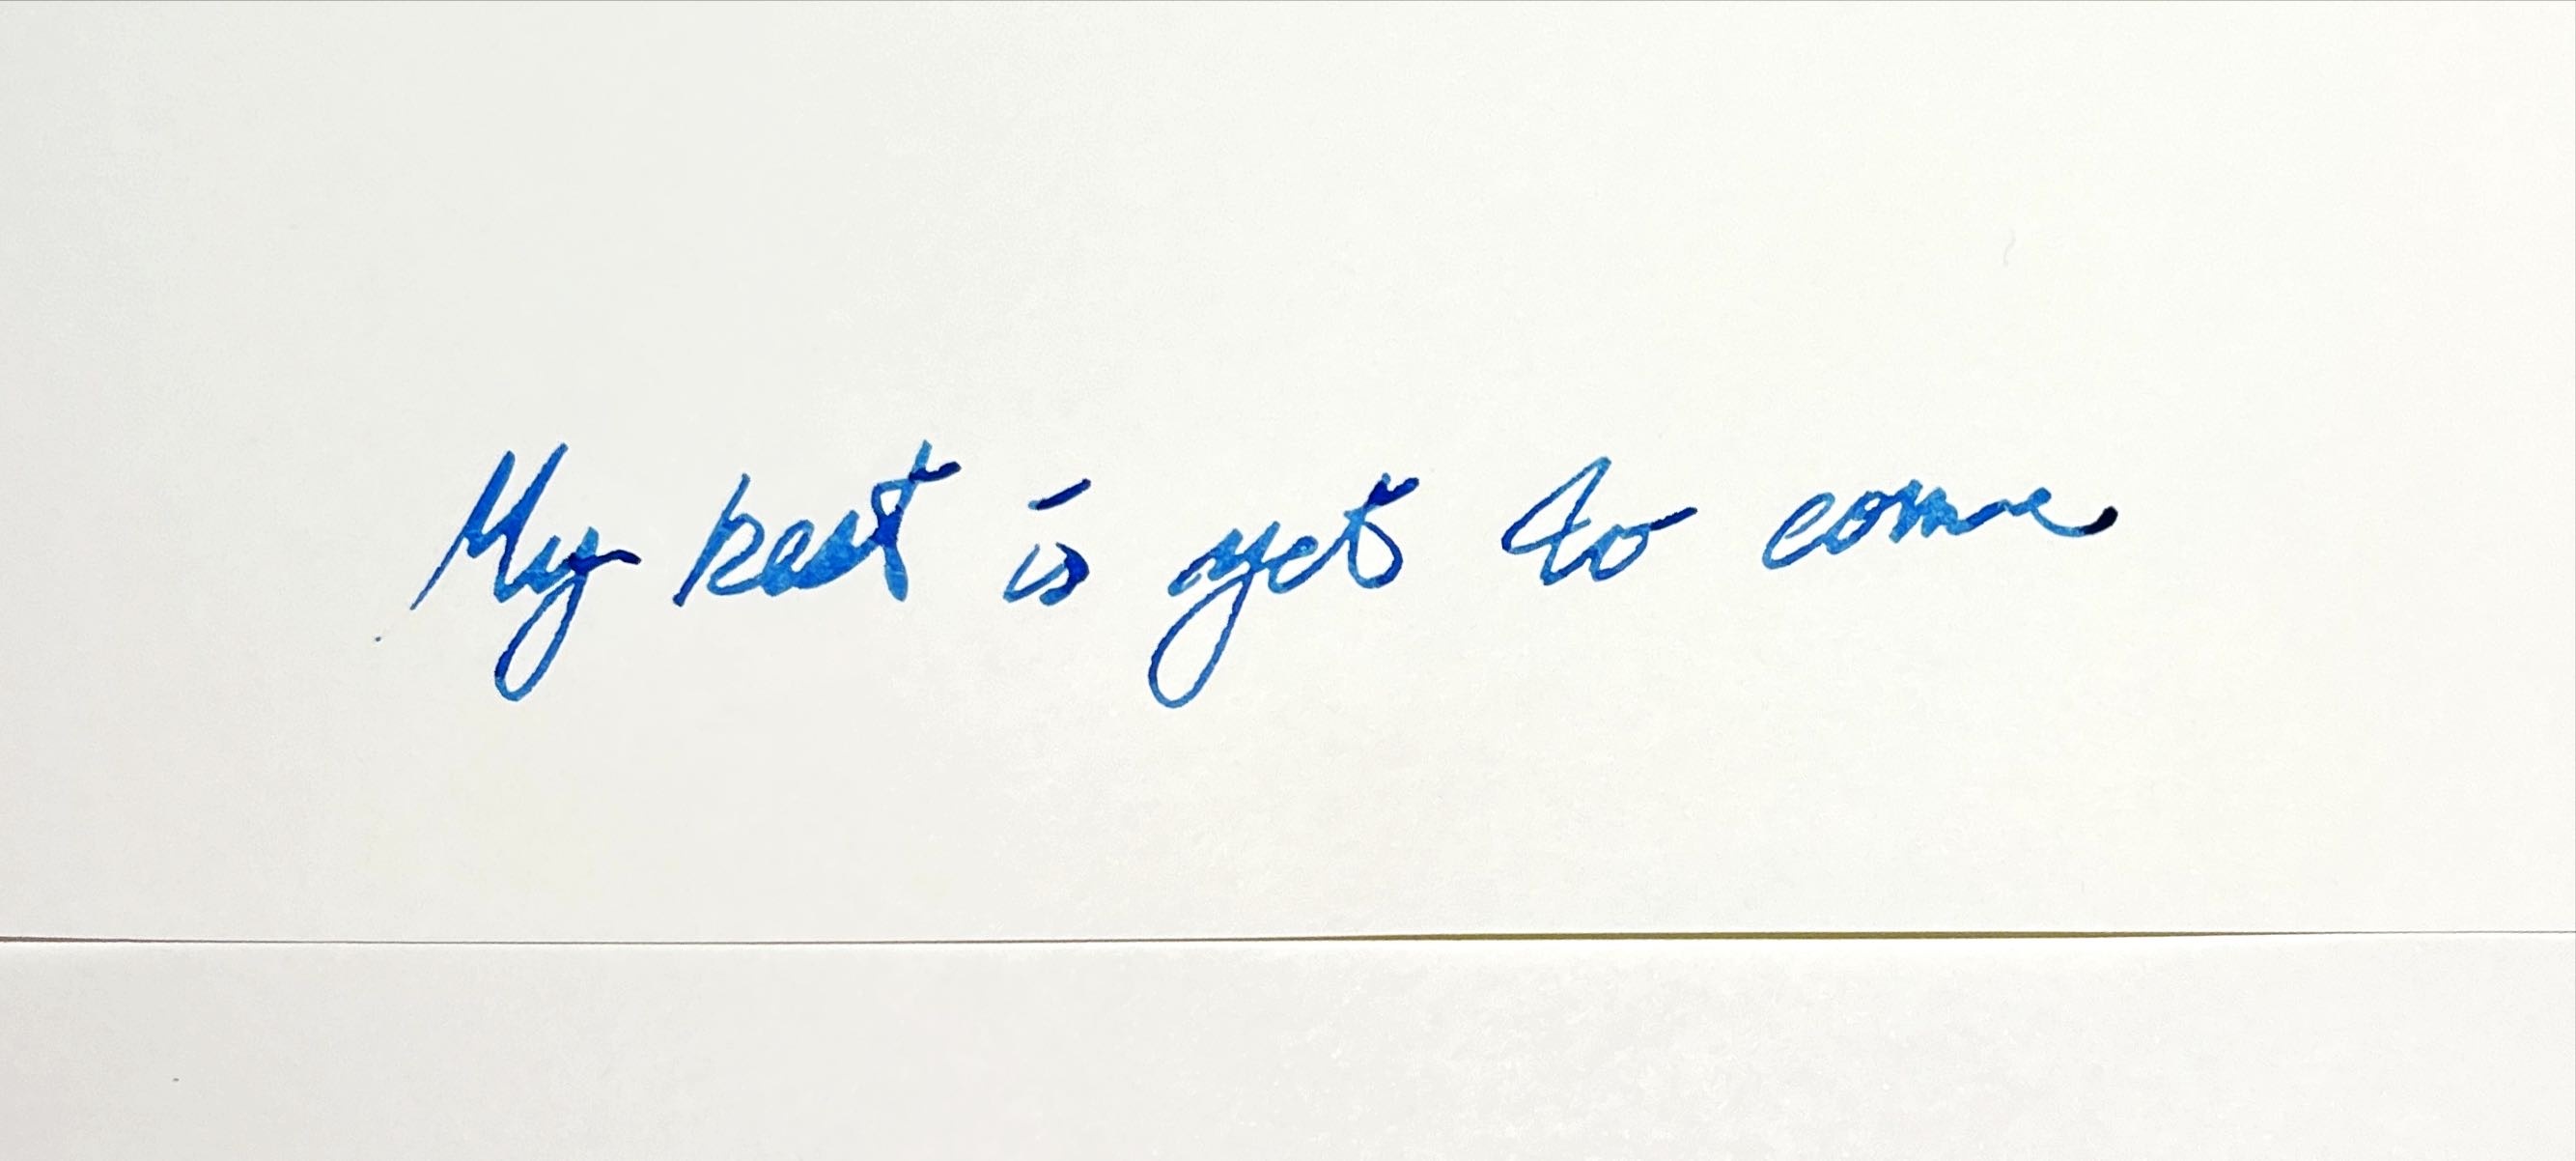 My best is yet to come